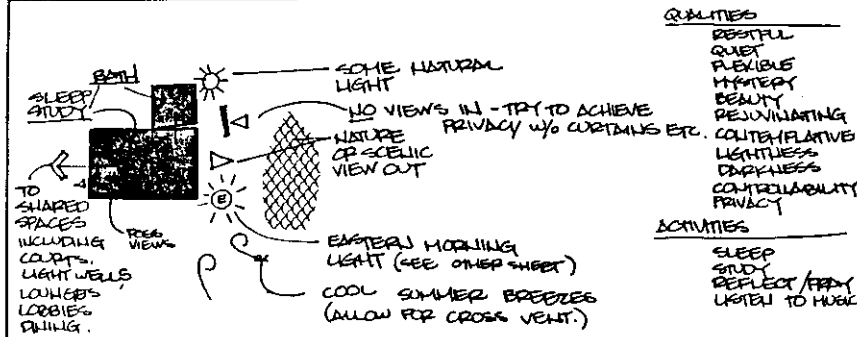 BATH
SLEEP
STUDY
TO
SHARED
SPACES
INCLUDING
COURTS,
LIGHT WELLS,
LOUNGES,
LOBBIES
DINING.
POSS
VIEWS
E
SOME NATURAL
LIGHT
NO VIEWS IN - TRY TO ACHIEVE
PRIVACY W/O CURTAINS ETC.
NATURE
OR SCENIC
VIEW OUT
EASTERN MORNING
LIGHT (SEE OTHER SHEET)
COOL SUMMER BREEZES
(ALLOW FOR CROSS VENT.)
QUALITIES
RESTFUL
QUIET
FLEXIBLE
MYSTERY
BEAUTY
REJUVINATING
CONTEMPLATIVE
LIGHTNESS
DARKNESS
CONTROLLABILITY
PRIVACY
ACTIVITIES
SLEEP
STUDY
REFLECT/PRAY
LISTEN TO MUSIC